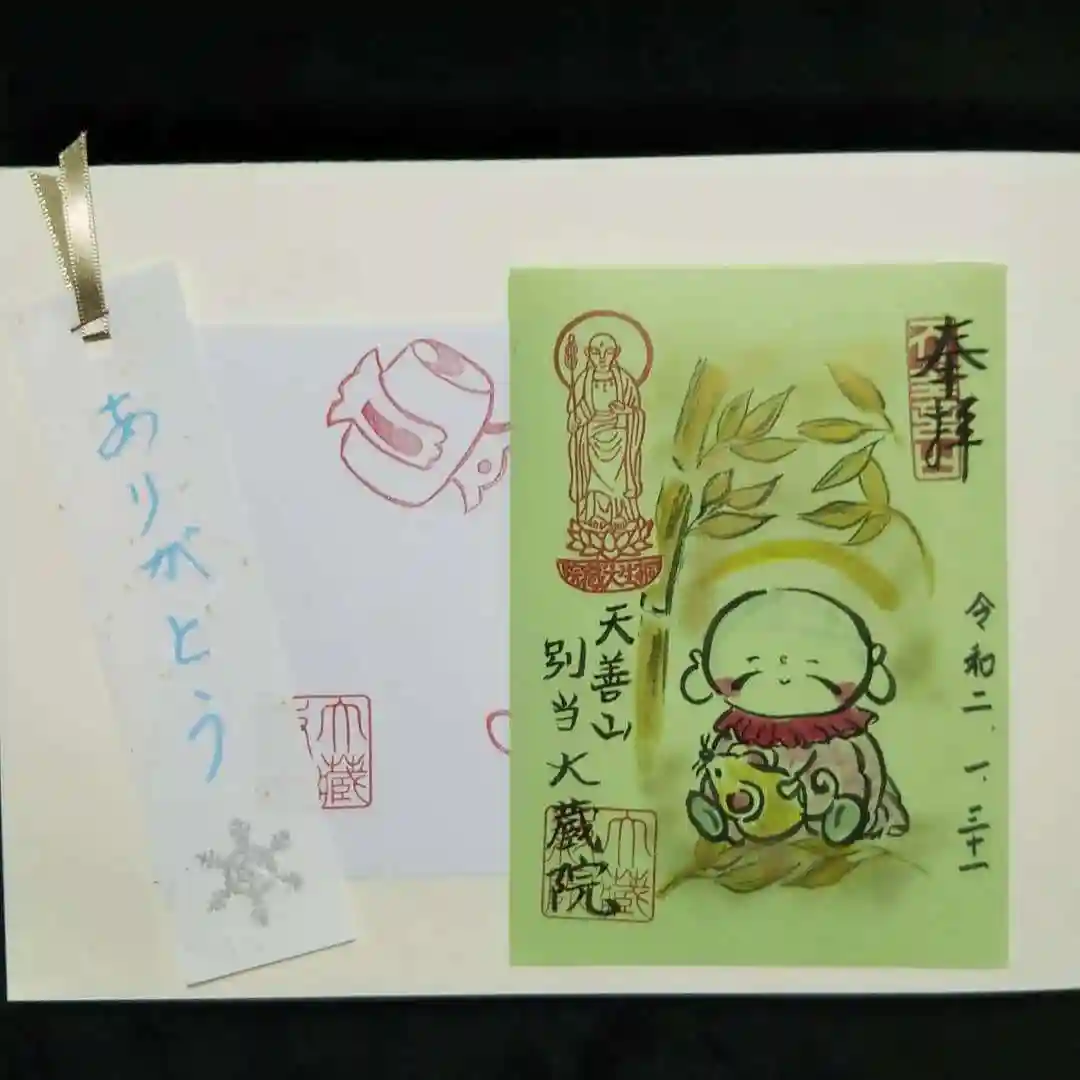 奉拝
令和二、一、三十一
天善山
別当大蔵院
大蔵
ありがとう
大蔵